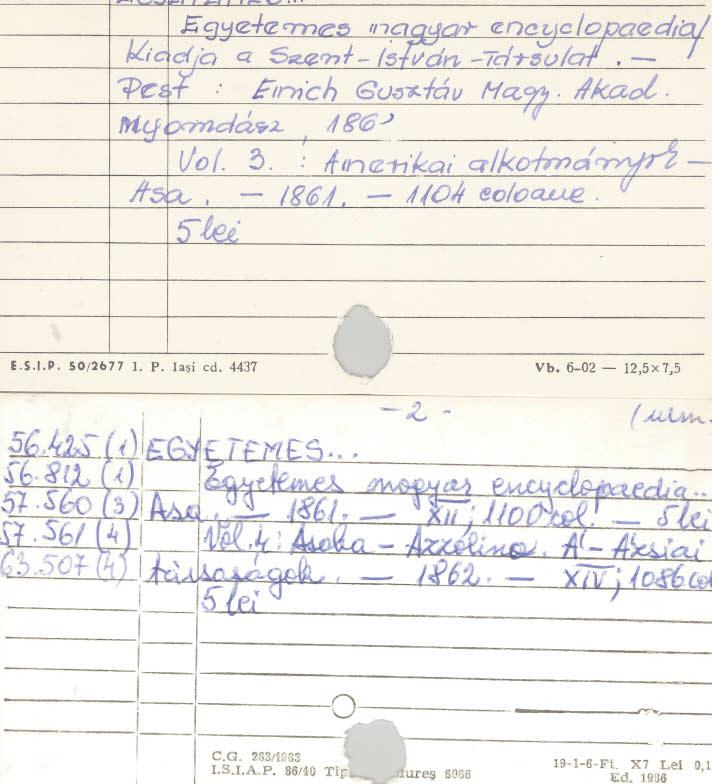 Egyetemes magyar encyclopaedia/
Kiadja a Szent-István-Társulat. —
Pest : Emich Gusztáv Magy. Akad.
Nyomdász, 186
Vol. 3. : Amerikai alkotmányok —
Asa. — 1861. — 1104 coloane.
5 lei
E.S.I.P. 50/2677 I. P. Iași cd. 4437
Vb. 6-02 — 12,5×7,5
- 2 -
56.425 (1) EGYETEMES...
56.812 (1) Egyetemes magyar encyclopaedia..
57.560 (3) Asa. — 1861. — XII; 1100 col. — 5 lei
57.561 (4) Vol. 4: Asoka – Azzolino. Á – Ázsiai
63.507 (4) társaságok. — 1862. — XIV; 1086 col
5 lei
C.G. 263/1963
I.S.I.A.P. 86/40 Tip ureș 6066
19-1-6-Ft. X7 Lei 0,1
Ed. 1966